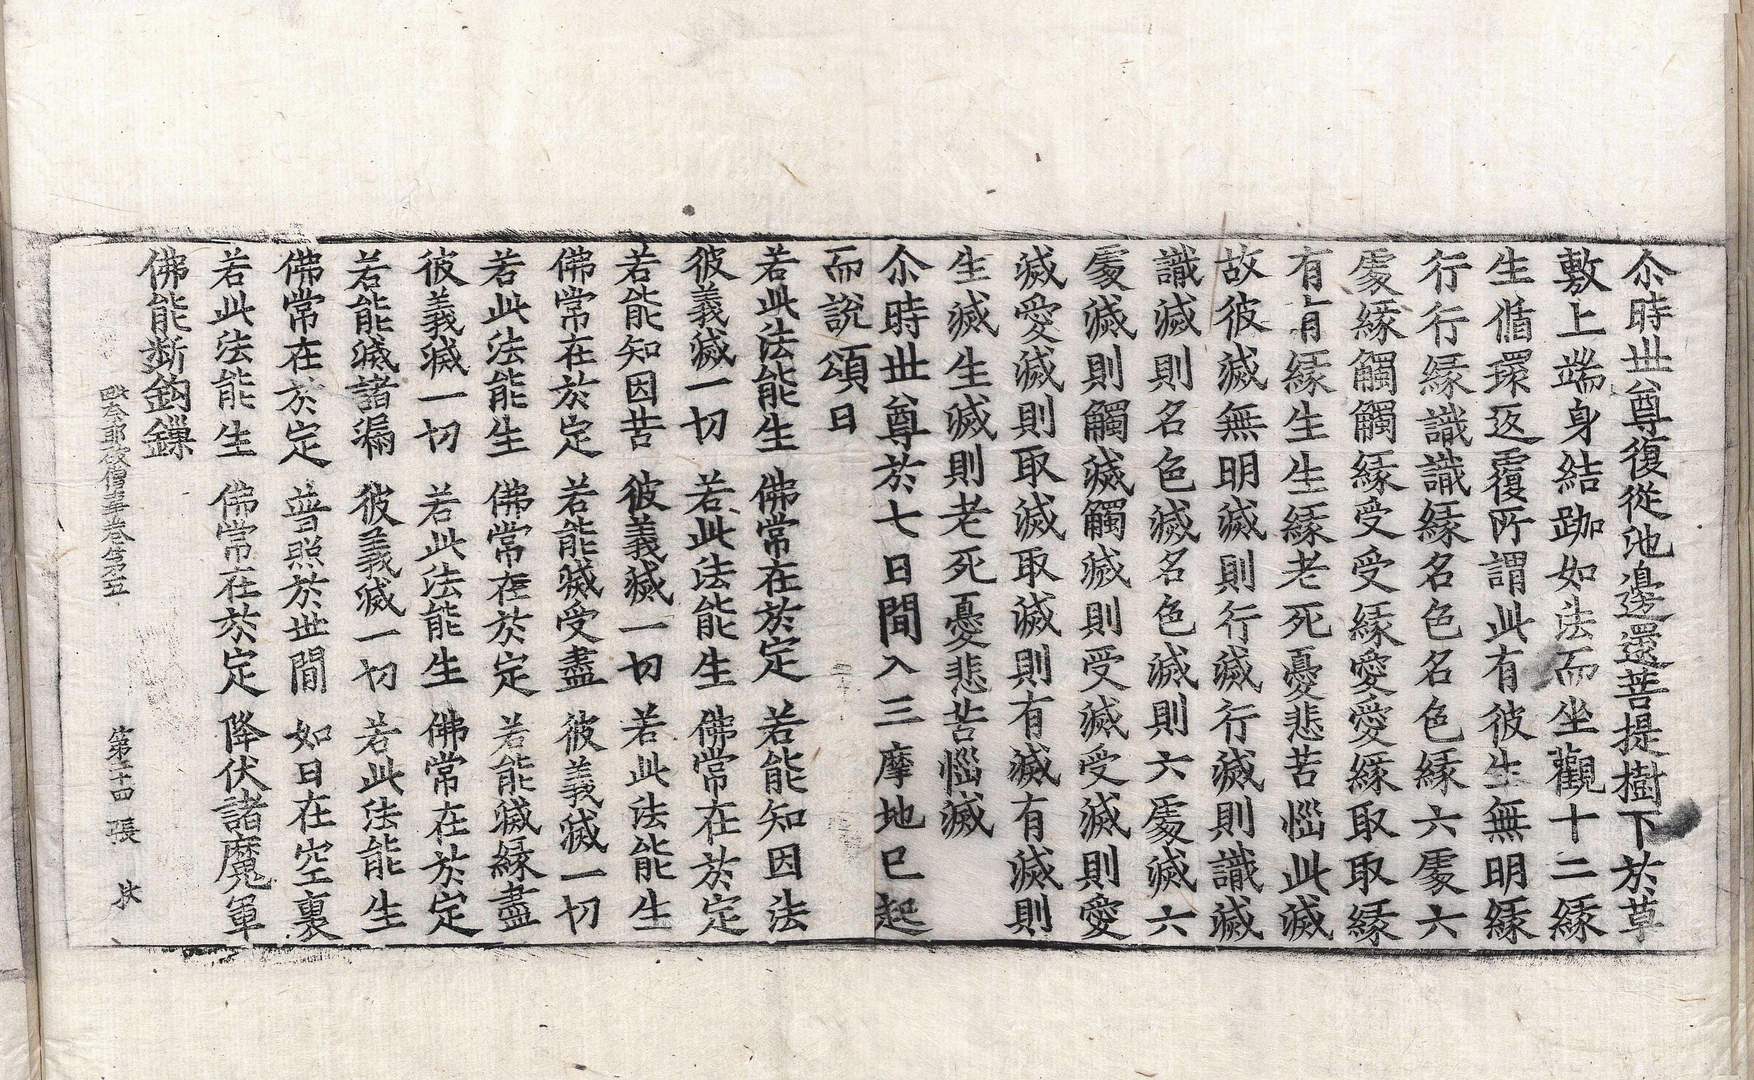 尒時世尊復從池邊還菩提樹下於草
敷上端身結跏如法而坐觀十二緣
生循環返覆所謂此有彼生無明緣
行行緣識識緣名色名色緣六處六
處緣觸觸緣受受緣愛愛緣取取緣
有有緣生生緣老死憂悲苦惱此滅
故彼滅無明滅則行滅行滅則識滅
識滅則名色滅名色滅則六處滅六
處滅則觸滅觸滅則受滅受滅則愛
滅愛滅則取滅取滅則有滅有滅則
生滅生滅則老死憂悲苦惱滅
尒時世尊於七日間入三摩地已起
而說頌曰
若此法能生 佛常在於定 若能知因法
彼義滅一切 若此法能生 佛常在於定
若能知因苦 彼義滅一切 若此法能生
佛常在於定 若能滅受盡 彼義滅一切
若此法能生 佛常在於定 若能滅緣盡
彼義滅一切 若此法能生 佛常在於定
若能滅諸漏 彼義滅一切 若此法能生
佛常在於定 普照於世間 如日在空裏
若此法能生 佛常在於定 降伏諸魔軍
佛能斷鉤鏁
毗奈耶破僧事卷第五 第二十四張